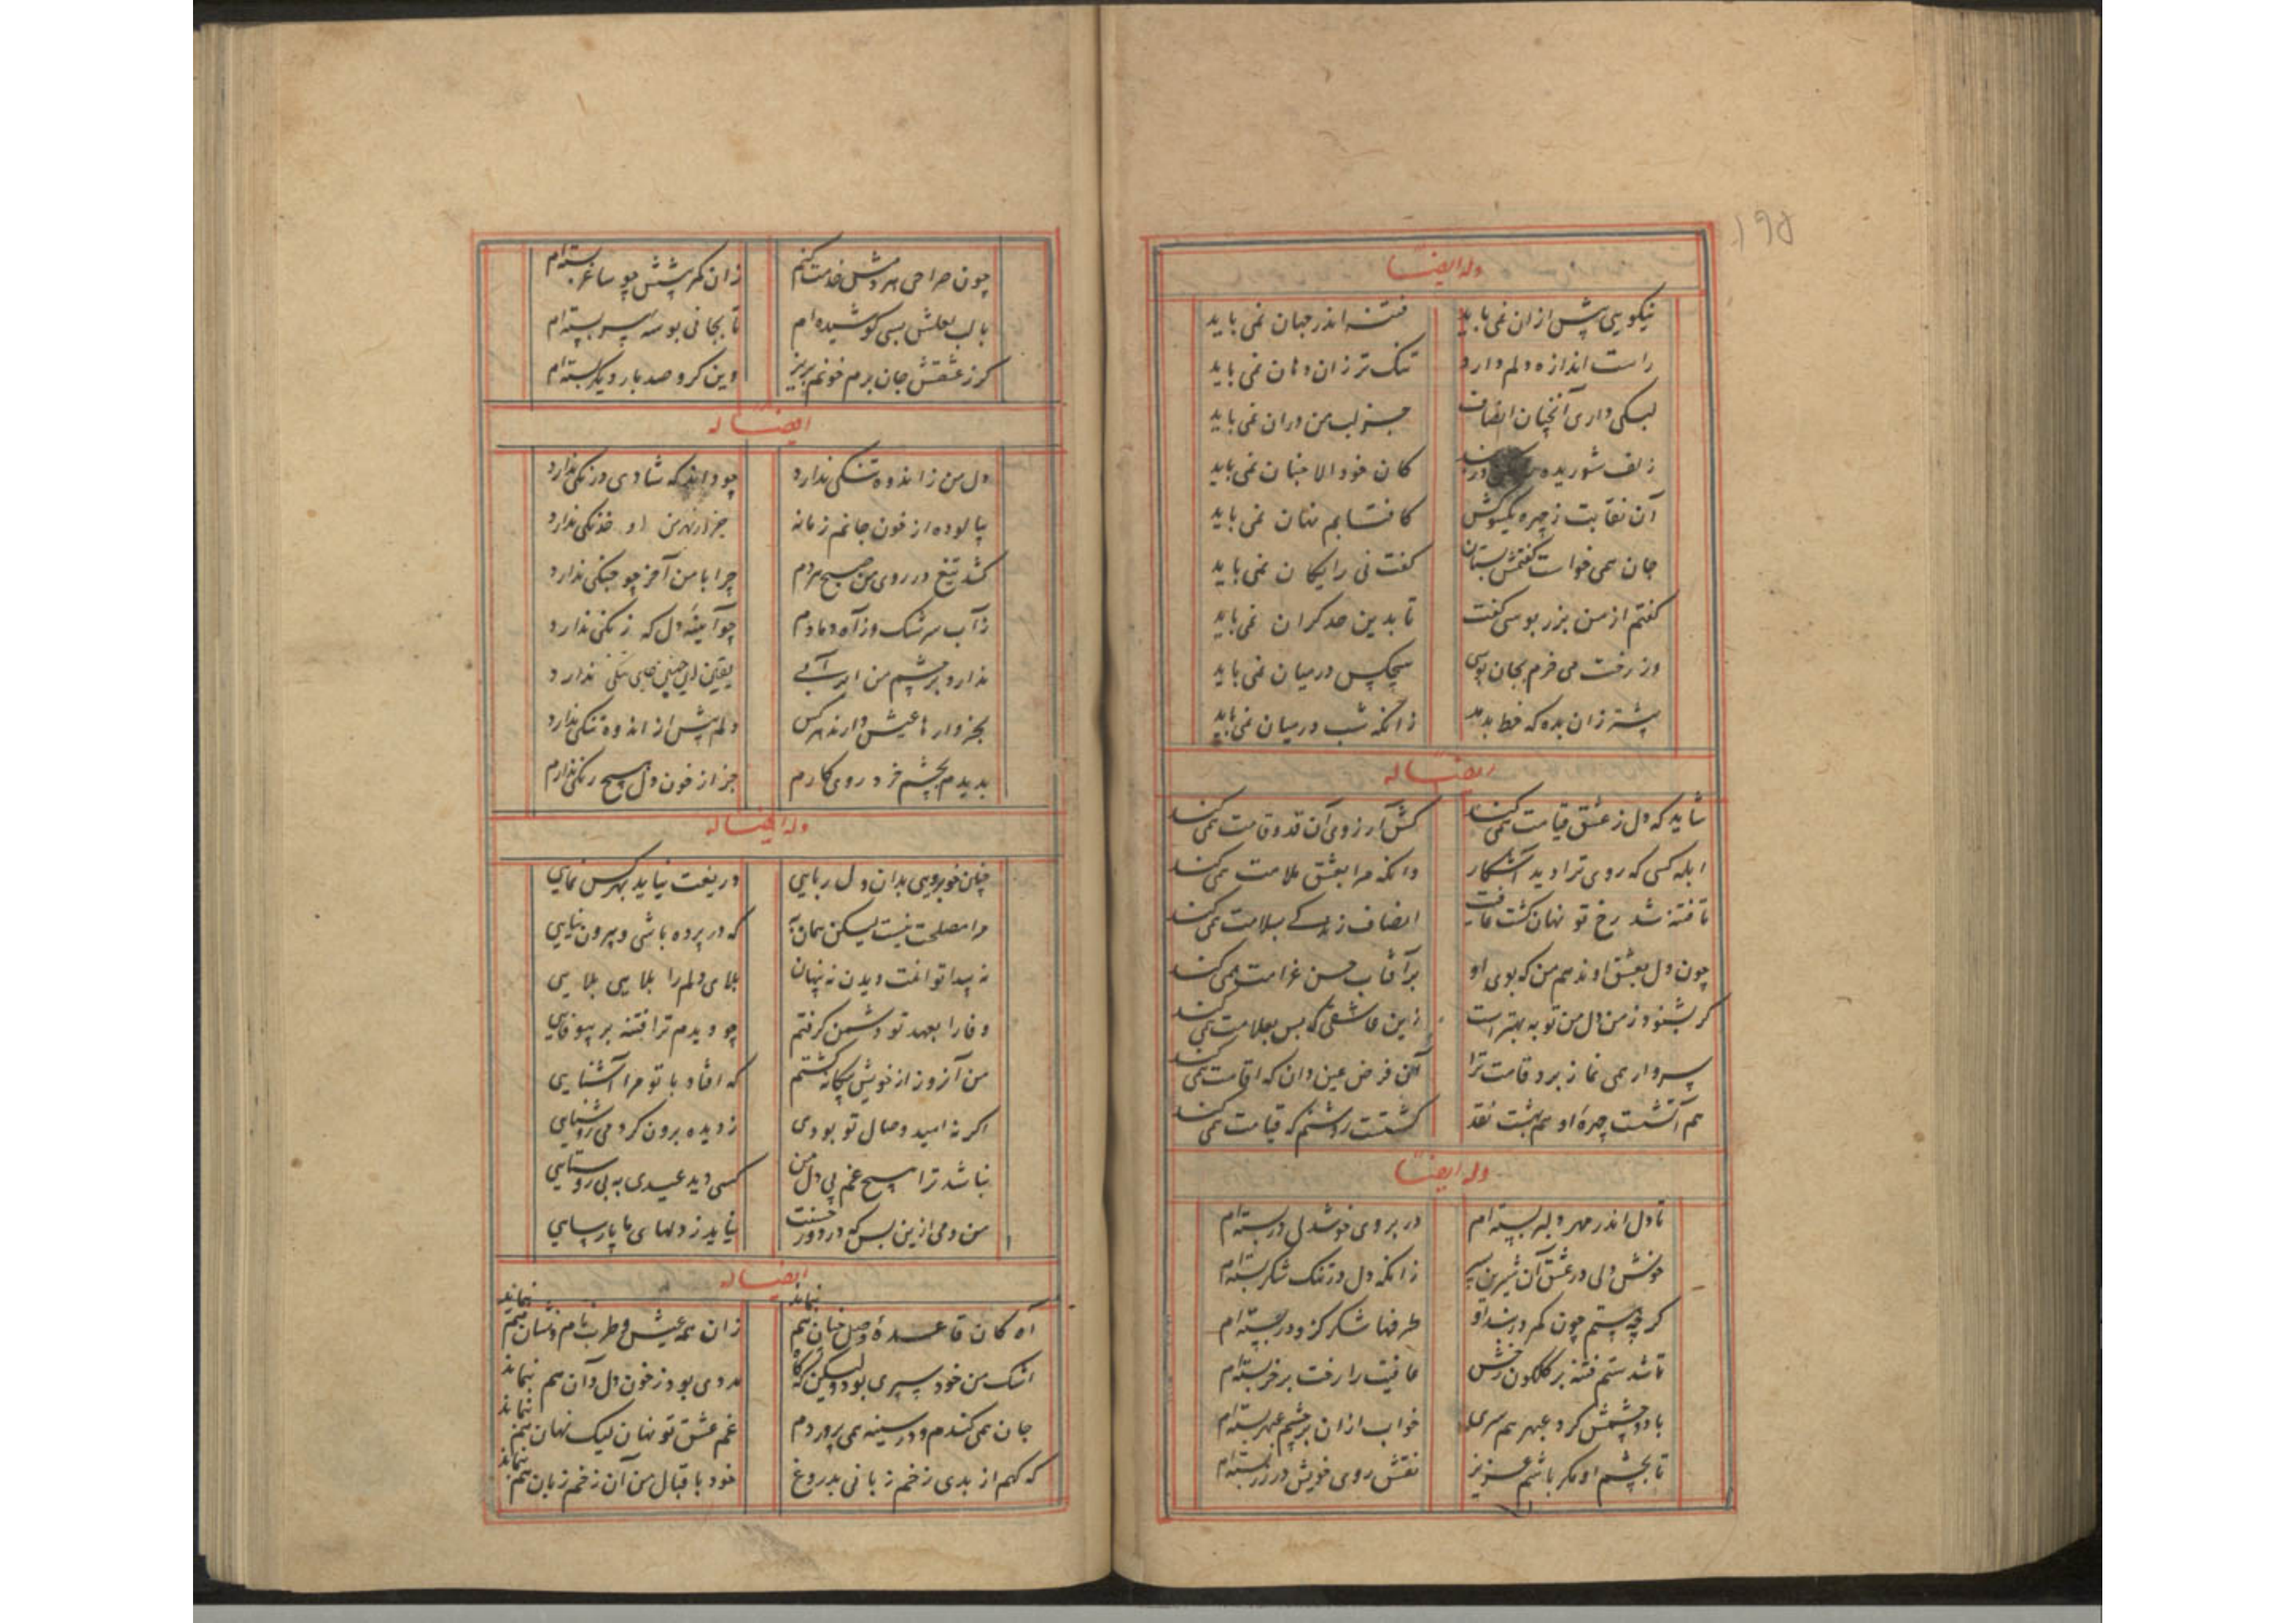 ۱۹۵
وله ایضا
نیکویی پیش ازان نمی باید فتنه اندر جهان نمی باید
راست اندازه دلم دارد تنک تر زان دهان نمی باید
لبکی داری آنچنان انصاف جز لب من دران نمی باید
زلف شوریده کان خود الا چنان نمی باید
آن نقابت ز چهره یکسو کش کافتابم نهان نمی باید
جان همی خواست گفتمش بستان گفت نی رایکان نمی باید
گفتم از من بزر بوسی گفت تا بدین حد گران نمی باید
وز رخت می خرم بجان بوسی هیچکس درمیان نمی باید
پیشتر زان بده که خط بدمد زانکه شب درمیان نمی باید
ایضا له
شاید که دل ز عشق قیامت همی کند کش آرزوی آن قد و قامت همی کند
ابله کسی که روی ترا دید آشکار وانکه مرا بعشق ملامت همی کند
تا فتنه شد رخ تو نهان گشت عافیت انصاف زیرکی بسلامت همی کند
چون دل بعشق او ندهم من که بوی او بر آفتاب حسن غرامت همی کند
گر بشنود ز من دل من توبه بهتر است زین عاشقی که بس بعلامت همی کند
پروار می نماز برد قامت ترا آن فرض عین دان که اقامت همی کند
هم آتشست چهره او هم بهشت نقد گشتت روشنم که قیامت همی کند
وله ایضا
تا دل اندر مهر دلبر بسته ام در بروی خوشدلی در بسته ام
خوش دلی در عشق آن شیرین پسر زانکه دل در تنک شکر بسته ام
گر چه پستم چون کمر در بند او طرفها شکر کزو بر بسته ام
تا شدستم فتنه بر گلگون رخش عافیت را رخت بر خر بسته ام
با دو چشمش کرد عبهر همسری خواب ازان بر چشم عبهر بسته ام
تا بچشم او مگر باشم عزیز نقش روی خویش در زر بسته ام
چون صراحی هر دمش خدمت کنم زان کمر پیشش چو ساغر بسته ام
با لب لعلش بسی کوشیده ام تا بجانی بوسه بر بسته ام
گر ز عشقش جان برم خونم بریز وین گرو صد بار دیگر بسته ام
ایضا له
دل من ز اندوه تنگی ندارد چو داند که شادی درنگی ندارد
بیالوده از خون جانم زمانه جز از بهر من او خدنگی ندارد
کشد تیغ در روی من صبح هر دم چرا با من آخر چو جنگی ندارد
ز آب سرشک و ز آه دمادم چو آیینه دل که زنگی ندارد
ندارد بر چشم من ابر آبی یقین این چنین ندارد
بخروارها عیش دارند هر کس دلم بیش از اندوه تنگی ندارد
بدیدم بچشم خرد روی کارم جز از خون دل هیچ رنگی ندارم
وله ایضا له
چنان خوبرویی بدان دل ربایی دریغت نیاید بهر کس نمایی
مرا مصلحت نیست لیکن همان به که در پرده باشی و بیرون نیایی
نه پیدا توانت دیدن نه پنهان بلای دلم را بلایی بلایی
وفا را بعهد تو دشمن گرفتم چو دیدم ترا فتنه بر بیوفایی
من آنروز از خویش بیگانه گشتم که افتاد با تو مرا آشنایی
اگر نه امید وصال تو بودی ز دیده برون کردمی روشنایی
نباشد ترا هیچ غم بی دل من کسی دید عیدی به بی روستایی
من و می ازین پس که در دور حسنت نیاید ز دلهای ما پارسایی
ایضا له
آه کان قاعده وصل چنان هم بنماند زان همه عیش و طرب نام و نشان هم بنماند
اشک من خود سپری بود ولیکن گه گاه مددی بود ز خون دل و آن هم بنماند
جان همی کندم و در سینه همی پروردم غم عشق تو نهان لیک نهان هم بنماند
که گهم از بدی زخم زبانی بدروغ خود باقبال من آن زخم زبان هم بنماند